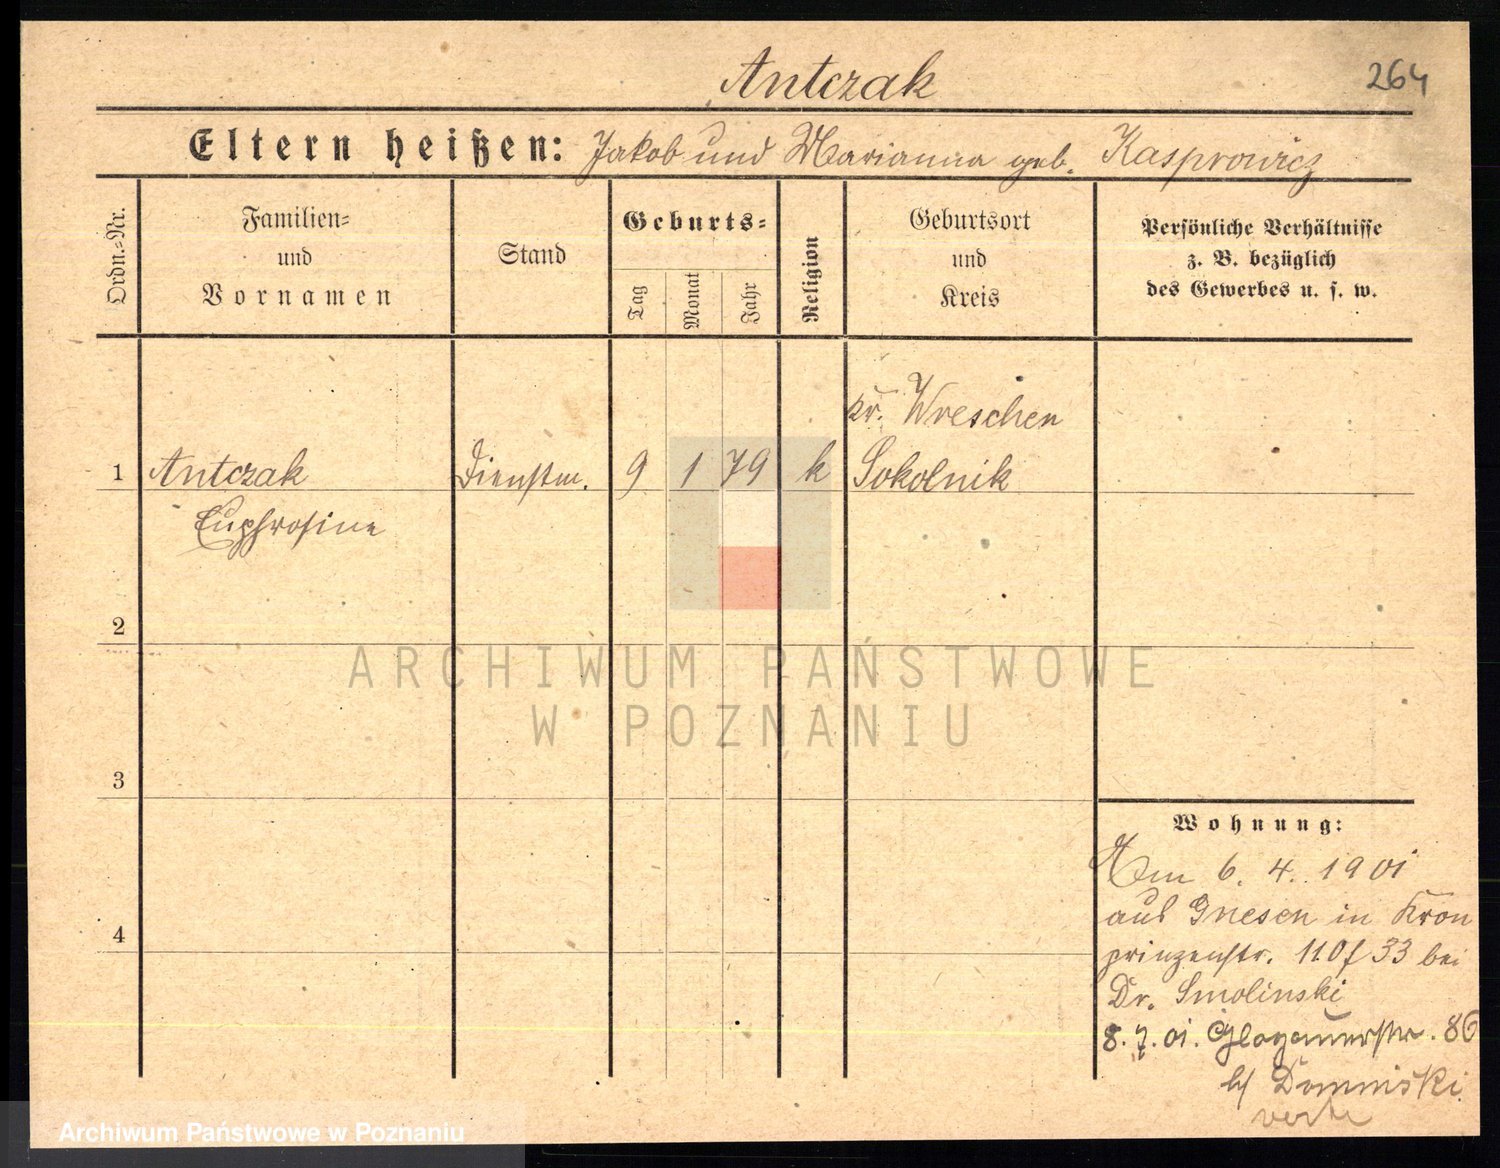 264
Antczak
Eltern heißen: Jakob und Marianna geb. Kasprowicz
Ordn.=Nr.
Familien=
und
Vornamen
Stand
Geburts=
Tag
Monat
Jahr
Religion
Geburtsort
und
Kreis
Persönliche Verhältnisse
z. B. bezüglich
des Gewerbes u. s. w.
Kr. Wreschen
1 Antczak Dienstm. 9 1 79 k Sokolnik
Euphrosine
2
3
4
Wohnung:
Am 6. 4. 1901
aus Gnesen in Kron
prinzenstr. 33 bei
Dr. Smolinski
8. 7. 01. Glogauerstr. 86
b/ Dominski
verte
ARCHIWUM PAŃSTWOWE
W POZNANIU
Archiwum Państwowe w Poznaniu